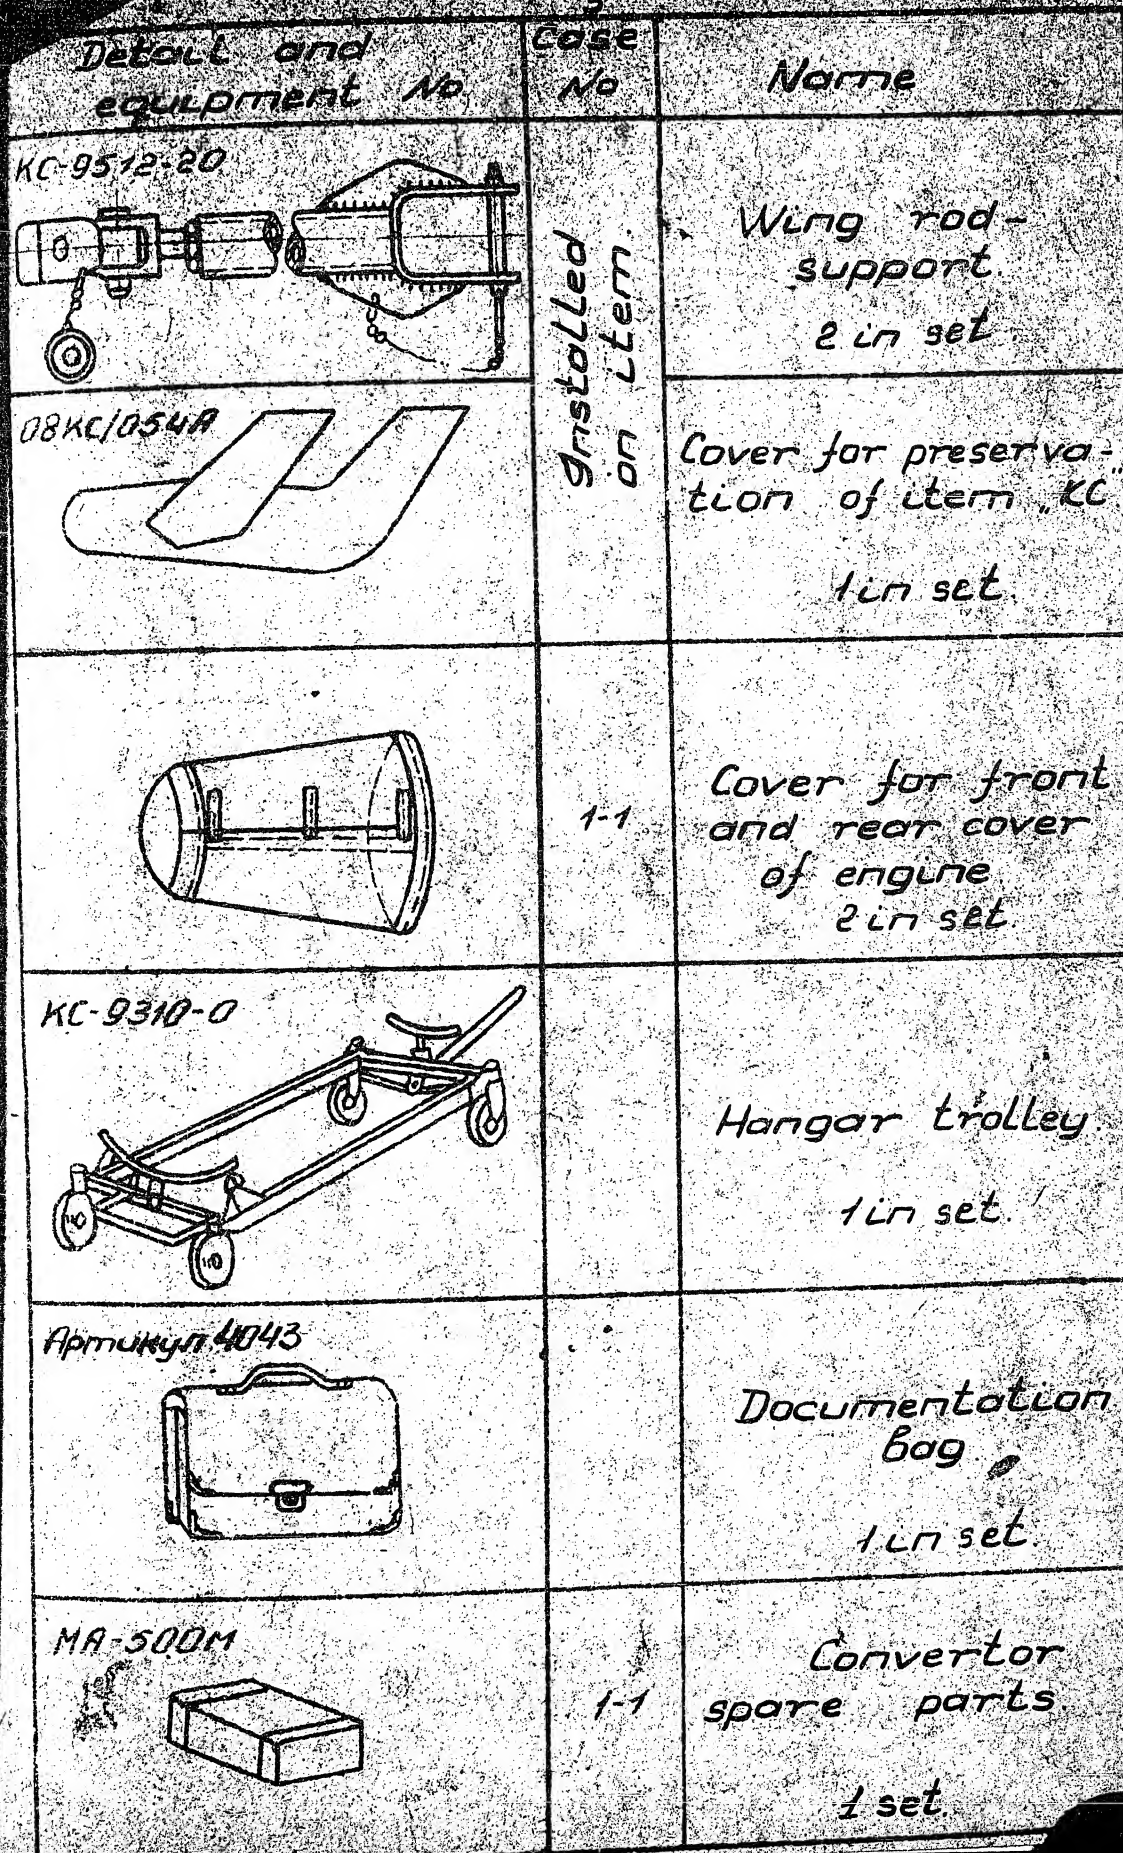 Detail and
equipment No
Case
No
Name
КС-9512-20
Installed
on item.
Wing rod-
support.
2 in set.
08КС/054А
Cover for preserva-
tion of item „КС"
1 in set.
1-1
Cover for front
and rear cover
of engine
2 in set.
КС-9310-0
Hangar trolley.
1 in set.
Артикул 4043
Documentation
bag.
1 in set.
МА-500М
1-1
Convertor
spare parts.
1 set.